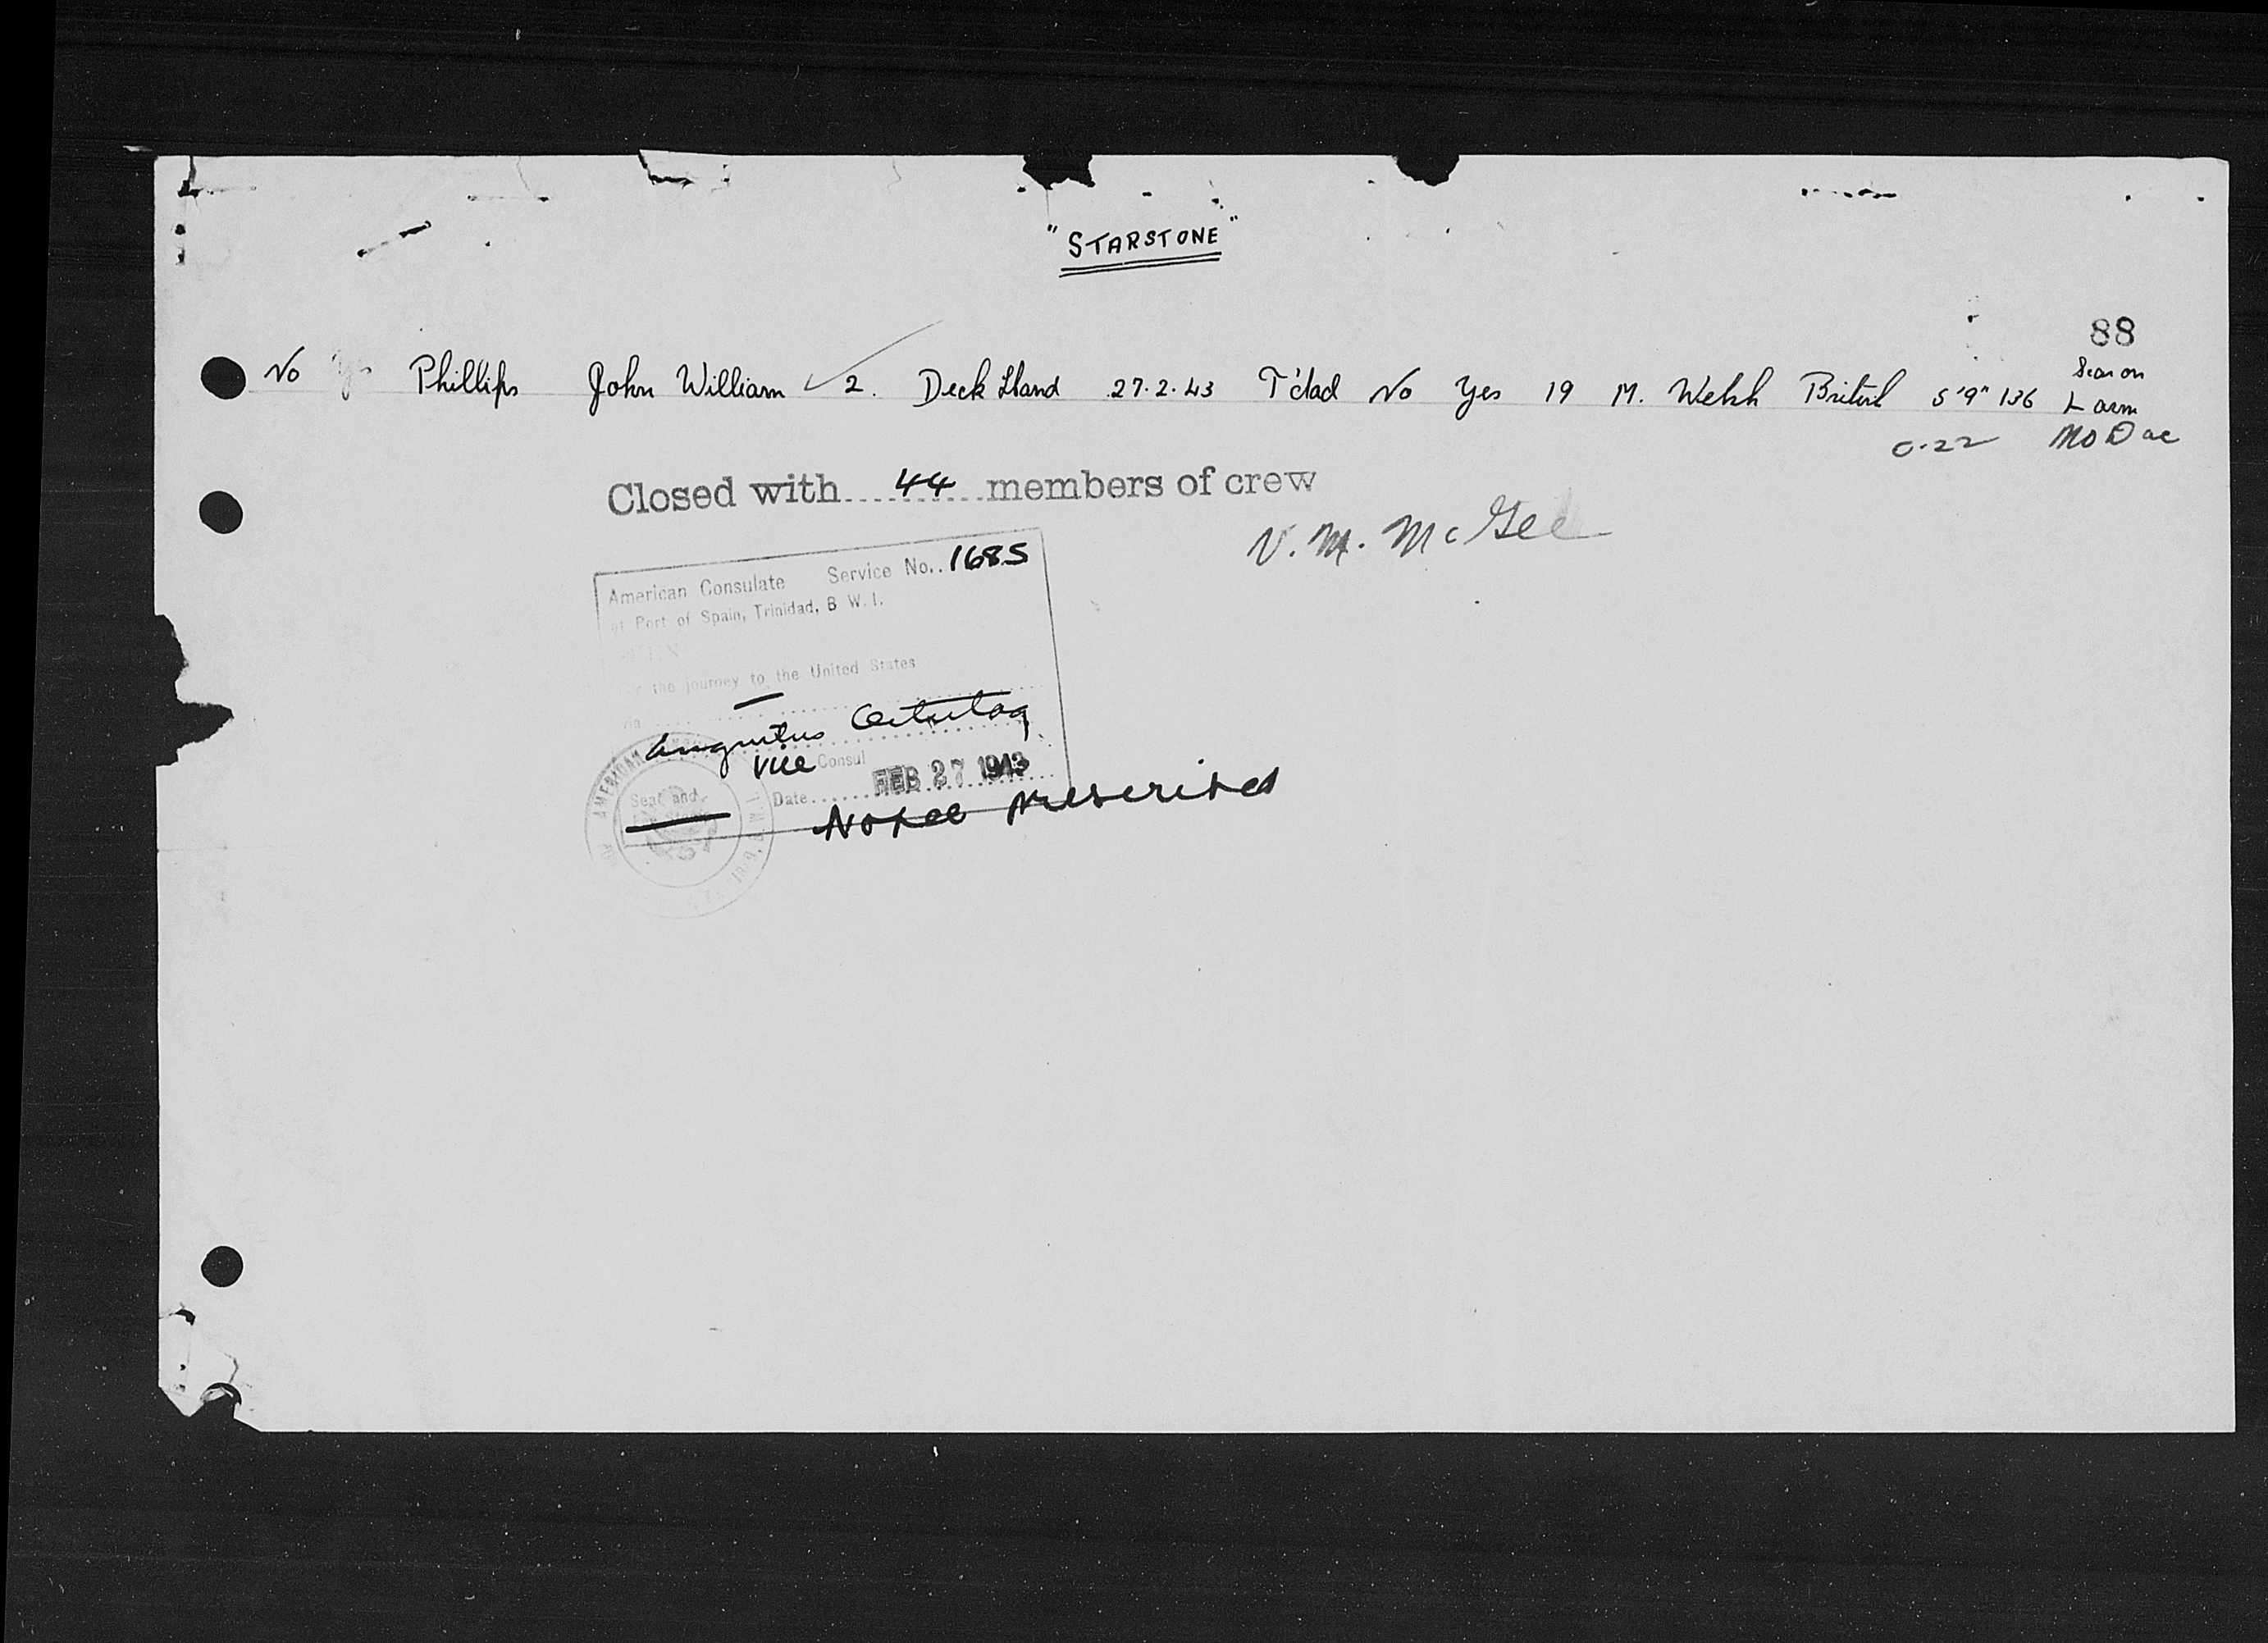 "STARSTONE"
88
No Phillips John William 2. Deck Hand 27.2.43 T'dad No Yes 19 M. Welsh British 5'9" 136 Scar on L arm
0-22 No D ac
Closed with 44 members of crew
V. M. McGee
American Consulate Service No. 1685
at Port of Spain, Trinidad, B W. I.
the journey to the United States
Vice Consul
Seal and
Date FEB 27 1943
No fee prescribed
AMERICAN